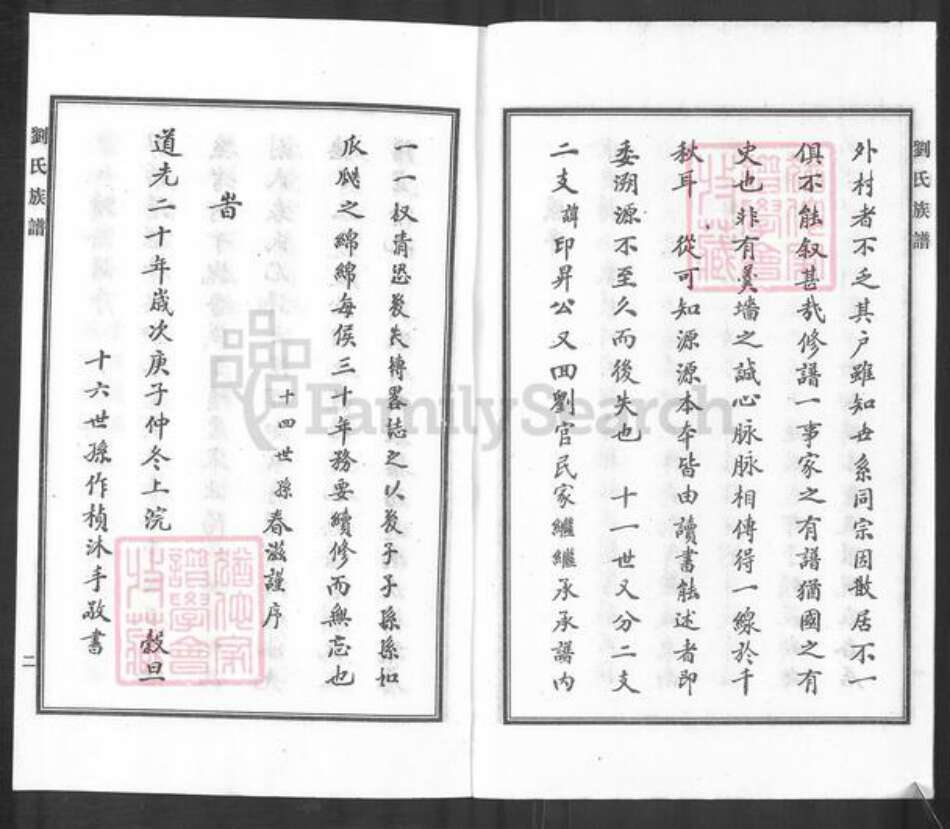 劉氏族譜
外村者不乏其户雖知世系同宗因散居不一
俱不能叙甚哉修譜一事家之有譜猶國之有
史也非有羹墻之誠心脉脉相傳得一線於千
秋耳 從可知源源本本皆由讀書能述者即
委溯源不至久而後失也 十一世又分二支
二支諱印昇公又回劉官民家繼繼承承譜内
一一叙清恐後失傳畧誌之以後子子孫孫如
瓜瓞之綿綿每俟三十年務要續修而無忘也
十四世孫 春滋謹序
時
道光二十年歲次庚子仲冬上浣 穀旦
十六世孫作楨沐手敬書
劉氏族譜
二
FamilySearch